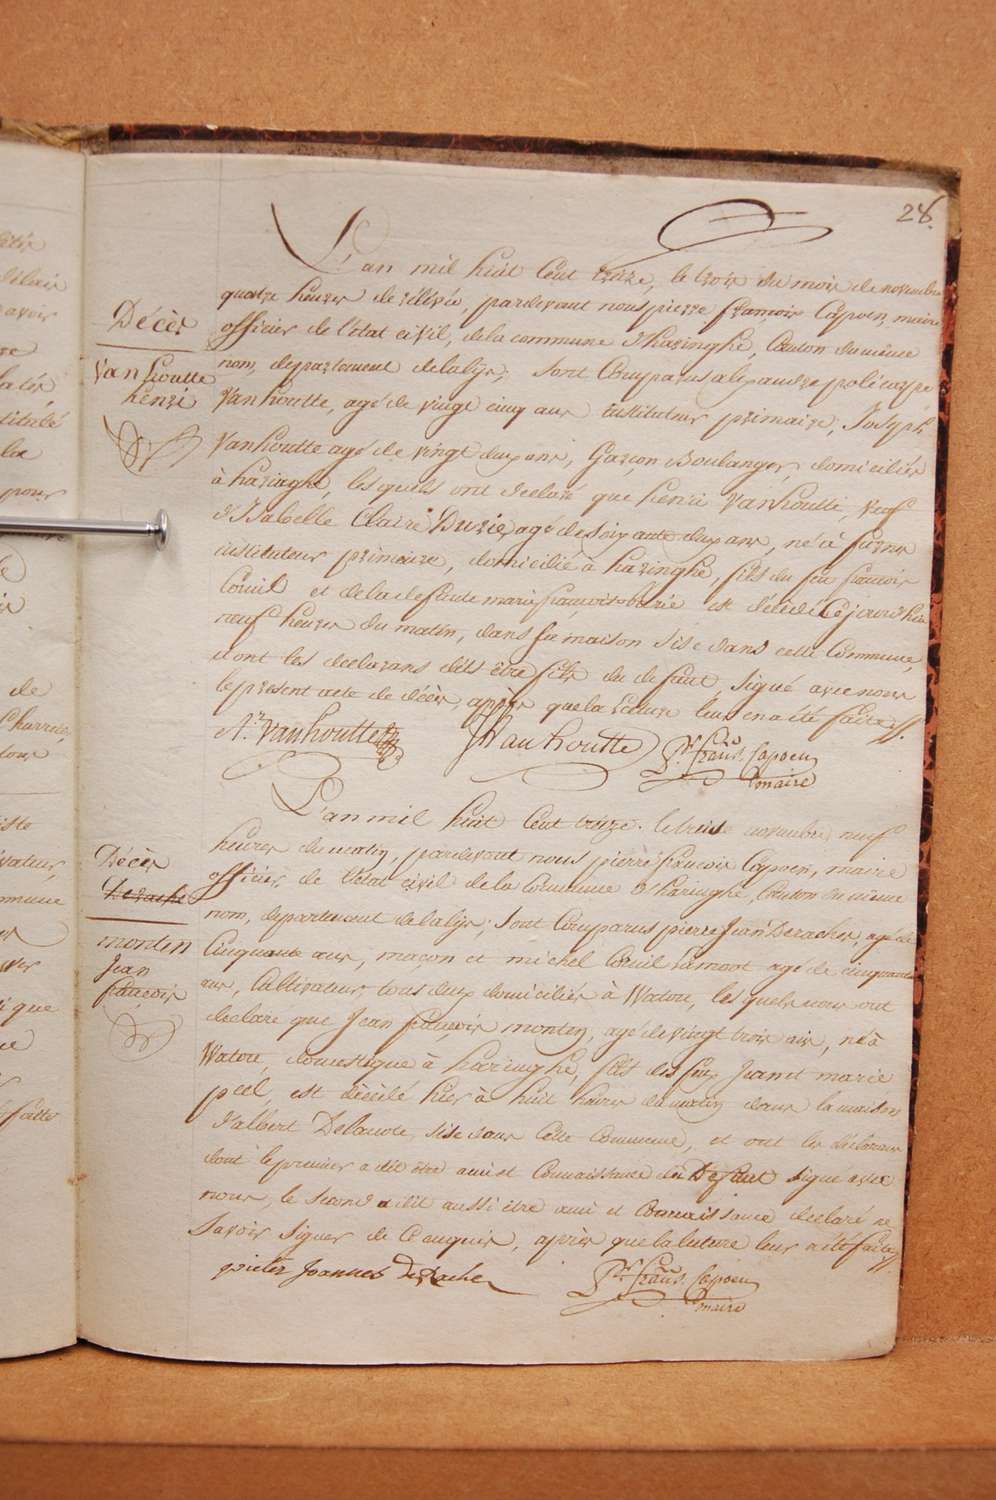 28.
L'an mil huit Cent treize, le trois du mois de novembre
quatre heures de relévée, pardevant nous pierre françois Capoen, maire
officier de l'état civil, de la commune d'haringhe, Canton du même
nom, departement de la lys, Sont Comparus alexandre policarpe
Vanhoutte, agé de vingt cinq ans instituteur primaire, Joseph
Vanhoutte agé de vingt deux ans, Garçon Boulanger, domiciliés
à haringhe, les quels ont declaré que henri Vanhoutte, veuf
d'Isabelle Claire Durie, agé de soixante deux ans, né à furnes
instituteur primaire, domicilié à haringhe, fils du feu françois
Cornil et de la defunte marie françoise est décédé Cejourd'hui
neuf heures du matin, dans sa maison sise dans cette Commune,
dont les declarans dits être fils du defunt, signé avec nous
le présent acte de décès, après que la lecture leur en a été faite
A.r Vanhoutte
J Vanhoutte
P.re Franç.s Capoen
maire
Décès
Vanhoutte
henri
L'an mil huit Cent treize. le treise novembre neuf
heures du matin, pardevant nous pierre françois Capoen, maire
officier, de l'état civil de la Commune d'haringhe, Canton du même
nom, departement de la lys; Sont Comparus pierre Jean Deracher, agé de
Cinquante ans, maçon et michel Cornil Lamoot agé de cinquante
ans, Cultivateur, tous deux domiciliés à Watou, les quels nous ont
declaré que Jean françois monten, agé de vingt trois ans, né à
Watou, domestique à haringhe, fils des feux Jean et marie
peel, est décédé hier à huit heures du matin dans la maison
d'albert Delanote, sise dans Cette Commune, et ont les déclarans
dont le premier a dit être ami et Connaissance du Defunt signé avec
nous, le second a dit aussi être ami et Connaissance declaré ne
Savoir signer de Ce enquis, après que la lecture leur a été faite
pieter Joannes Derache
P.re Franç.s Capoen
maire
Décès
Derache
monten
Jean
françois